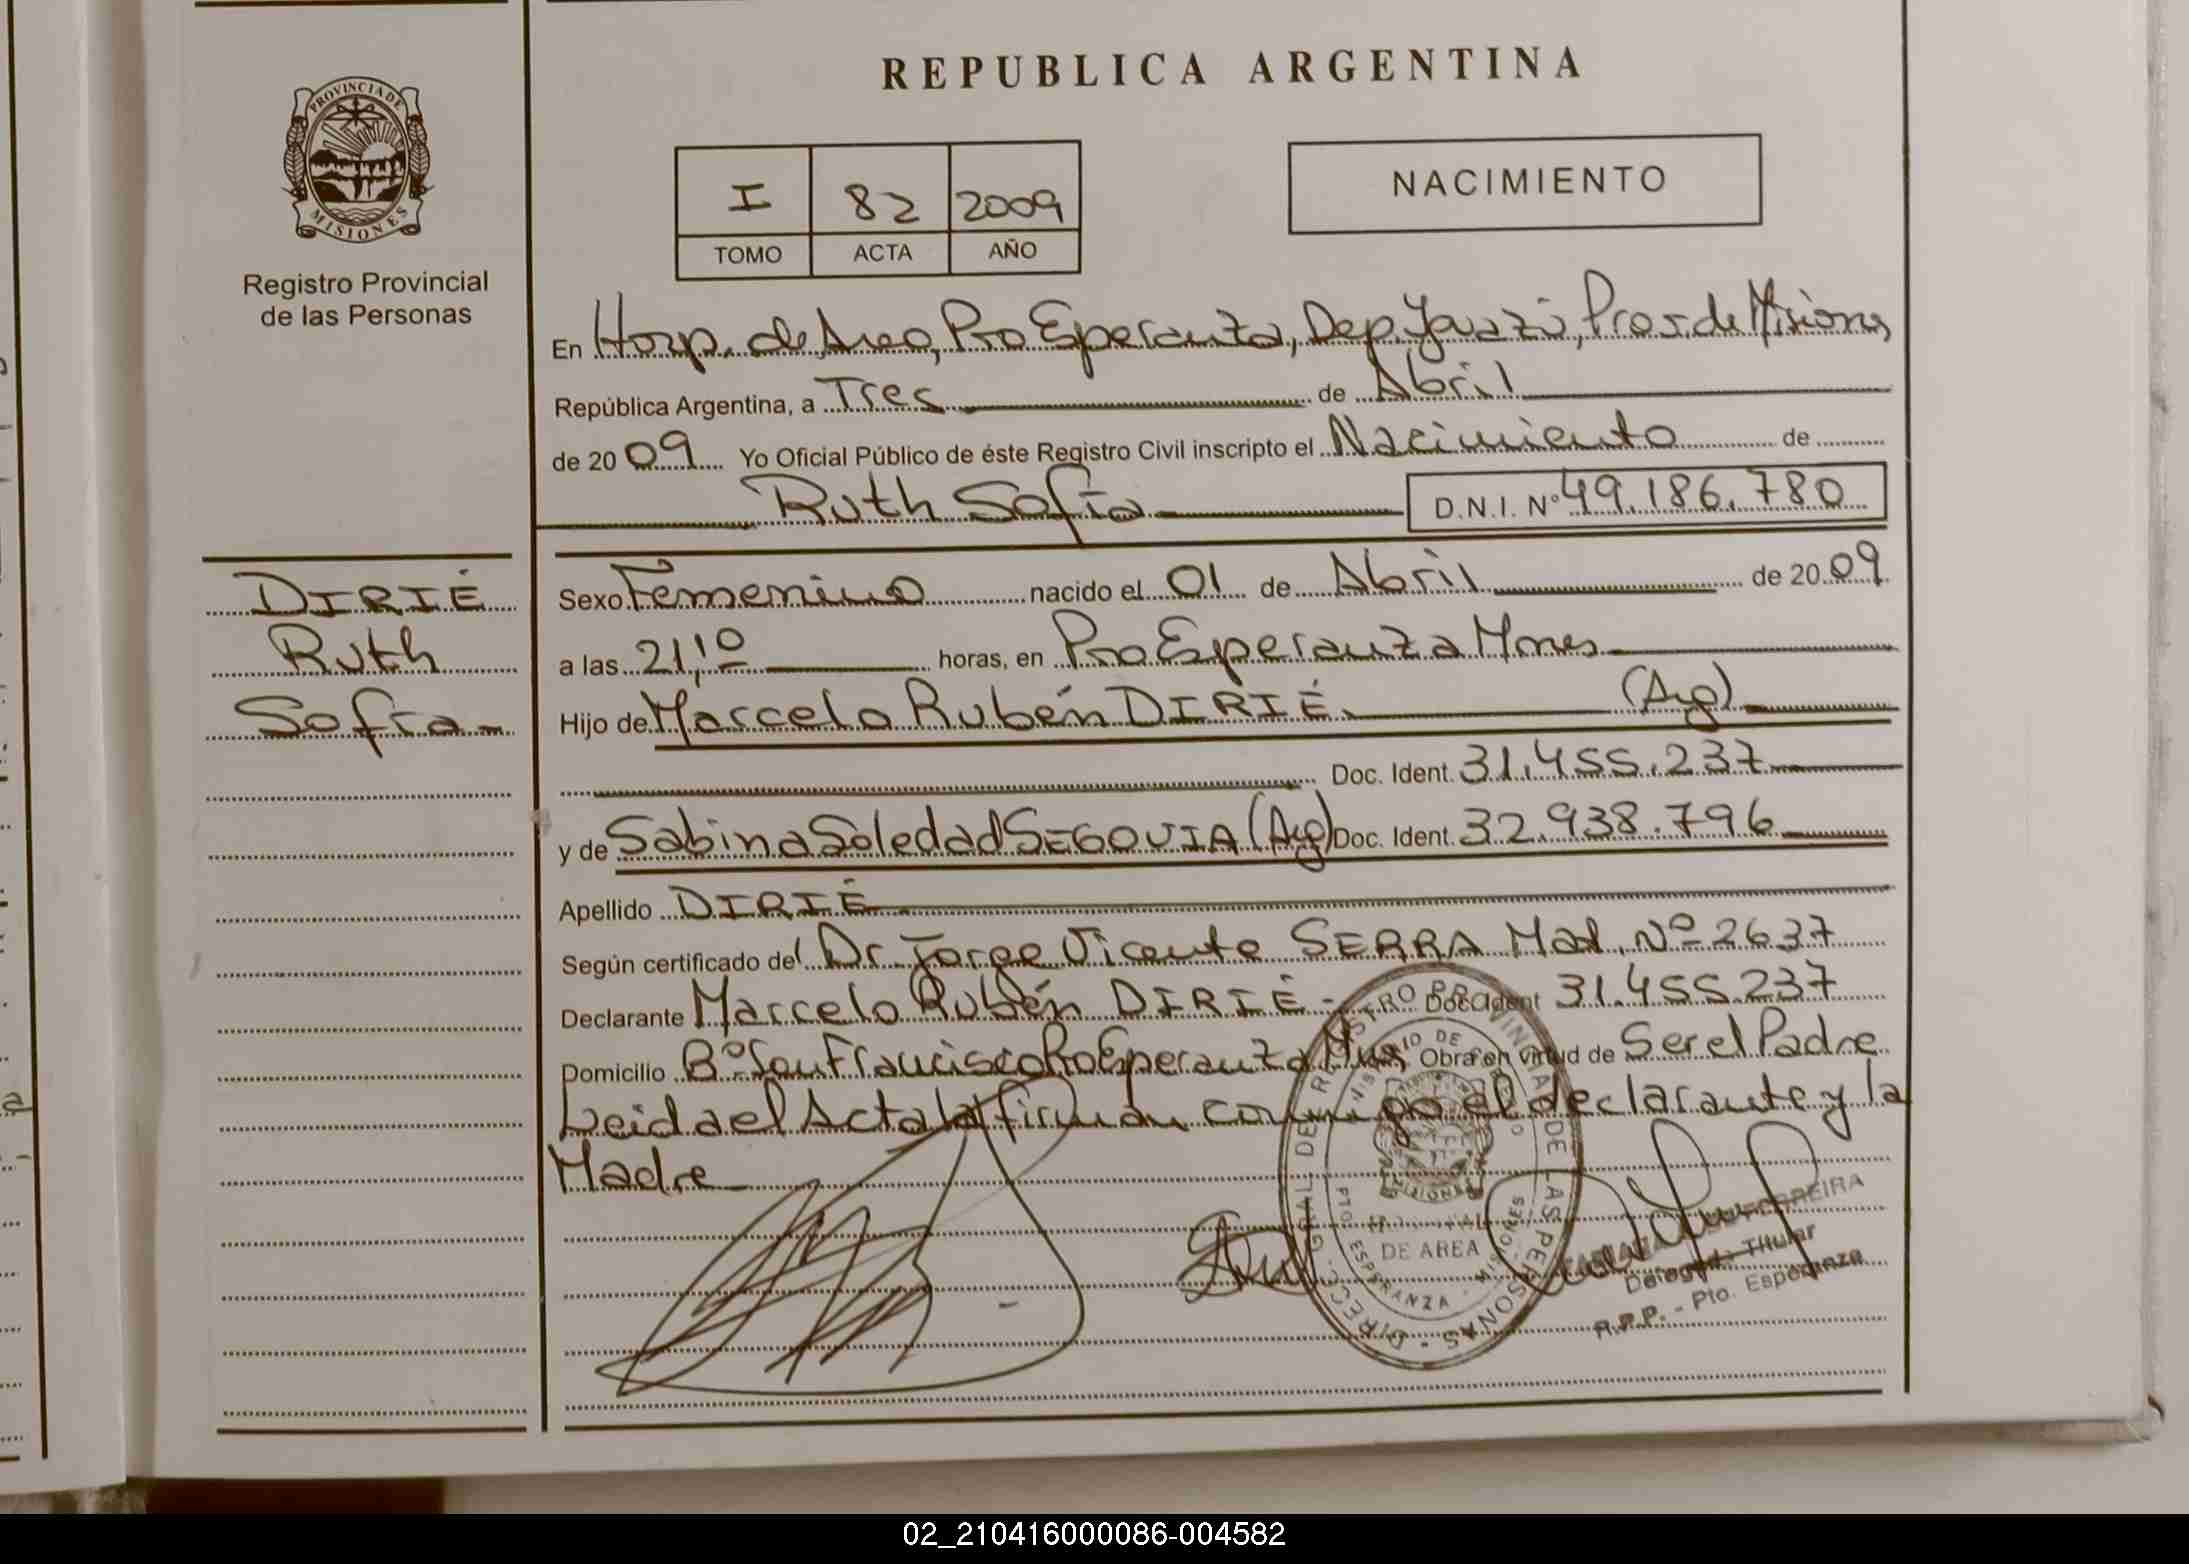 REPUBLICA ARGENTINA
PROVINCIA DE MISIONES
Registro Provincial
de las Personas
I 82 2009
TOMO ACTA AÑO
NACIMIENTO
En Hosp. de Area, Pto Esperanza, Dep. Iguazú, Prov. de Misiones,
República Argentina, a Tres de Abril
de 2009 Yo Oficial Público de éste Registro Civil inscripto el Nacimiento de
Ruth Sofía D.N.I. Nº 49.186.780
DIRIÉ
Ruth
Sofía-
Sexo Femenino nacido el 01 de Abril de 2009
a las 21,10 horas, en Pto Esperanza Mnes
Hijo de Marcelo Rubén DIRIÉ (Arg)
Doc. Ident. 31.455.237
y de Sabina Soledad SEGOVIA (Arg) Doc. Ident. 32.938.796
Apellido DIRIÉ
Según certificado del Dr. Jorge Vicente SERRA Mat. Nº 2637
Declarante Marcelo Rubén DIRIÉ - Doc. Ident 31.455.237
Domicilio Bº San Francisco Pto Esperanza Mns, Obra en virtud de Ser el Padre
Leida el Acta la firman conmigo el declarante y la
Madre
DIRECC. GRAL. DEL REGISTRO PROVINCIAL DE LAS PERSONAS
MISIONES
DE AREA
PTO. ESPERANZA - MISIONES
FERREIRA
Delegada Titular
R.P.P. - Pto. Esperanza
02_210416000086-004582